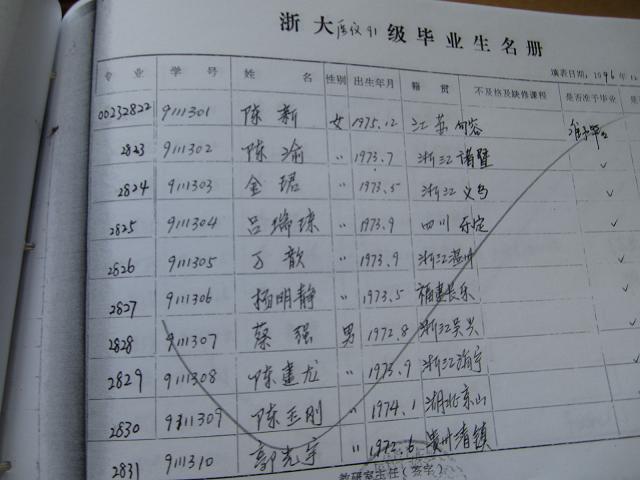 浙大医仪91级毕业生名册
填表日期：1996年12
专业 学号 姓名 性别 出生年月 籍贯 不及格及缺修课程 是否准予毕业
00232822 9111301 陈新 女 1975.12 江苏句容 准予毕业
2823 9111302 陈渝 〃 1973.7 浙江诸暨
2824 9111303 金珺 〃 1973.5 浙江义乌 ✓
2825 9111304 吕瑞 〃 1973.9 四川 ✓
2826 9111305 万歆 〃 1973.9 浙江温州 ✓
2827 9111306 杨明静 〃 1973.5 福建长乐 ✓
2828 9111307 蔡强 男 1972.8 浙江吴兴 ✓
2829 9111308 陈建龙 〃 1973.9 浙江海宁
2830 9111309 陈正刚 〃 1974.1 湖北京山
2831 9111310 郭光宇 〃 1973.6 贵州清镇
教研室主任（签字）